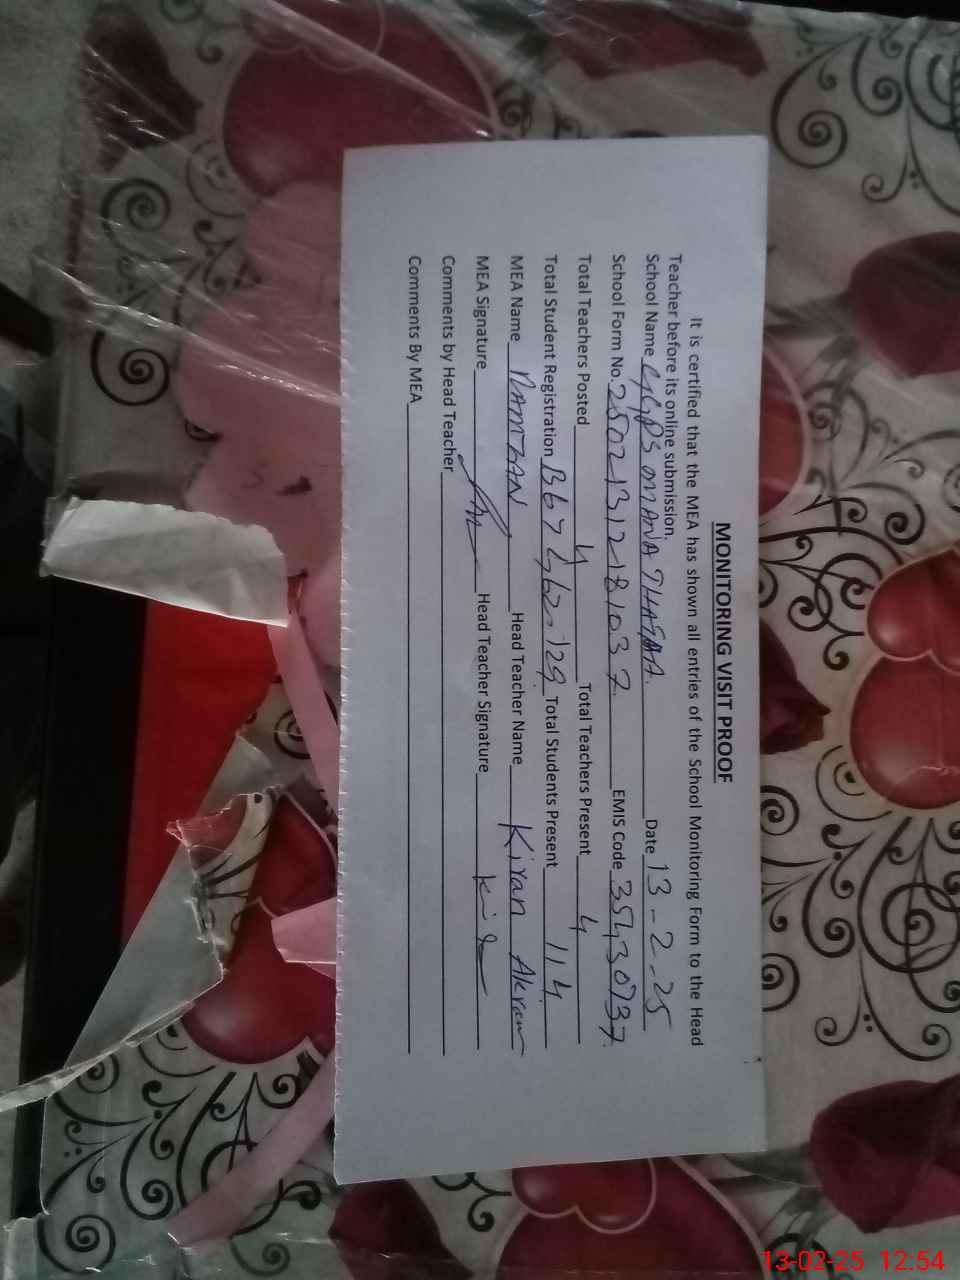 MONITORING VISIT PROOF
It is certified that the MEA has shown all entries of the School Monitoring Form to the Head
Teacher before its online submission.
School Name GGPS MANA Date 13-2-25
School Form No. 25021312181037 EMIS Code 35430737
Total Teachers Posted 4 Total Teachers Present 4
Total Student Registration B67 G62=129 Total Students Present 114
MEA Name RAMZAN Head Teacher Name Kiran Akram
MEA Signature Head Teacher Signature
Comments by Head Teacher
Comments By MEA
13-02-25 12:54